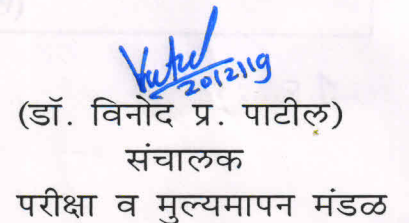 20/2/19
(डॉ. विनोद प्र. पाटील)
संचालक
परीक्षा व मुल्यमापन मंडळ